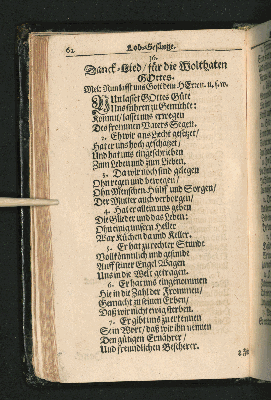 62 Lob-Gesänge.
36.
Danck-Lied / für die Wolthaten
GOttes.
Mel: Nun lasst uns Gott dem HErren. u. s. w.
NUn lasset GOttes Güte
Uns führen zu Gemühte:
Kommt / lasset uns erwegen
Des frommen Vaters Segen.
2. Eh wir ans Liecht gesetzet /
Hat er uns hoch geschätzet /
Und hat uns eingeschrieben
Zum Leben und zum Lieben.
3. Da wir noch sind gelegen
Ohn regen und bewegen /
Ohn Menschen Hülff und Sorgen /
Der Mutter auch verborgen /
4. Hat er allein uns geben
Die Glieder und das Leben:
Ohn einig unsern Heller
War Küchen da und Keller.
5. Er hat zu rechter Stunde
Vollkömmlich und gesunde
Auff seiner Engel Wagen
Uns in die Welt getragen.
6. Er hat uns eingenommen
Hie in die Zahl der Frommen /
Gemacht zu seinen Erben /
Daß wir nicht ewig sterben.
7. Er gibt uns zu erkennen
Sein Wort / daß wir ihn nennen
Den gütigen Ernährer /
Und freundlichen Bescherer.